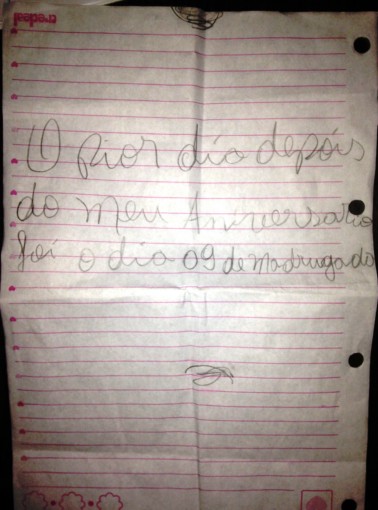 credeal
O pior dia depois
do meu Aniversario
foi o dia 09 de madrugada